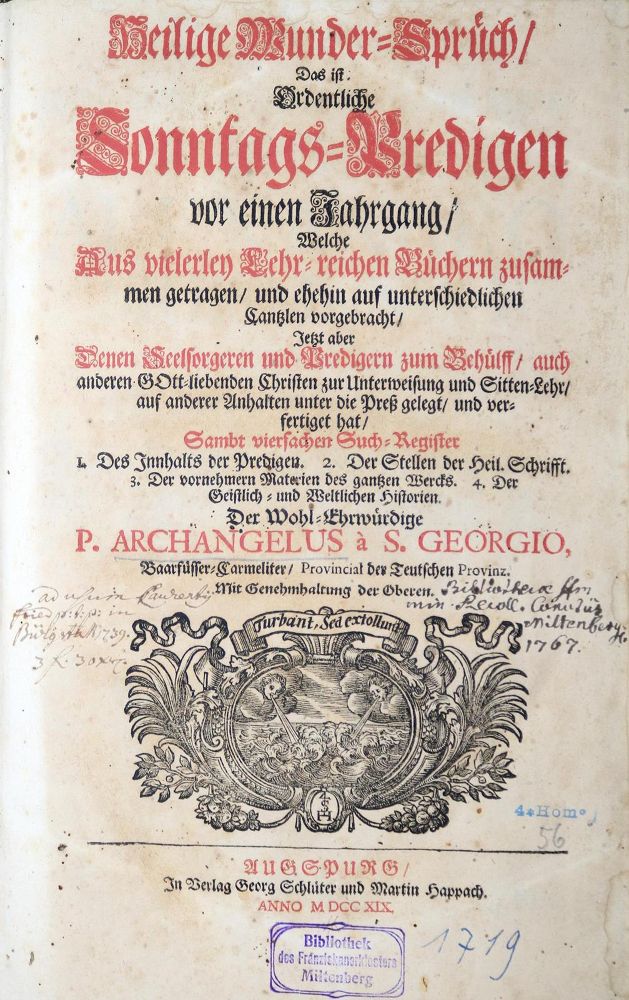 Heilige Wunder=Sprüch/
Das ist:
Ordentliche
Sonntags=Predigen
vor einen Jahrgang/
Welche
Aus vielerley Lehr=reichen Büchern zusam=
men getragen/ und ehehin auf unterschiedlichen
Cantzlen vorgebracht/
Jetzt aber
Denen Seelsorgeren und Predigern zum Behülff/ auch
anderen GOtt=liebenden Christen zur Unterweisung und Sitten=Lehr/
auf anderer Anhalten unter die Preß gelegt/ und ver=
fertiget hat/
Sambt vierfachen Such=Register
1. Des Innhalts der Predigen. 2. Der Stellen der Heil. Schrifft.
3. Der vornehmern Materien des gantzen Wercks. 4. Der
Geistlich= und Weltlichen Historien.
Der Wohl=Ehrwürdige
P. ARCHANGELUS à S. GEORGIO,
Baarfüsser=Carmeliter/ Provincial der Teutschen Provinz.
Mit Genehmhaltung der Oberen.
ad usum
in
1739.
3 f. 30
Bibliothecæ ffr.
min. Conv.
Miltenberg.
1767.
Turbant, Sed extollunt
4° Hom.
56
AUGSPURG/
In Verlag Georg Schlüter und Martin Happach.
ANNO M DCC XIX.
1719
Bibliothek
des Franziskanerklosters
Miltenberg